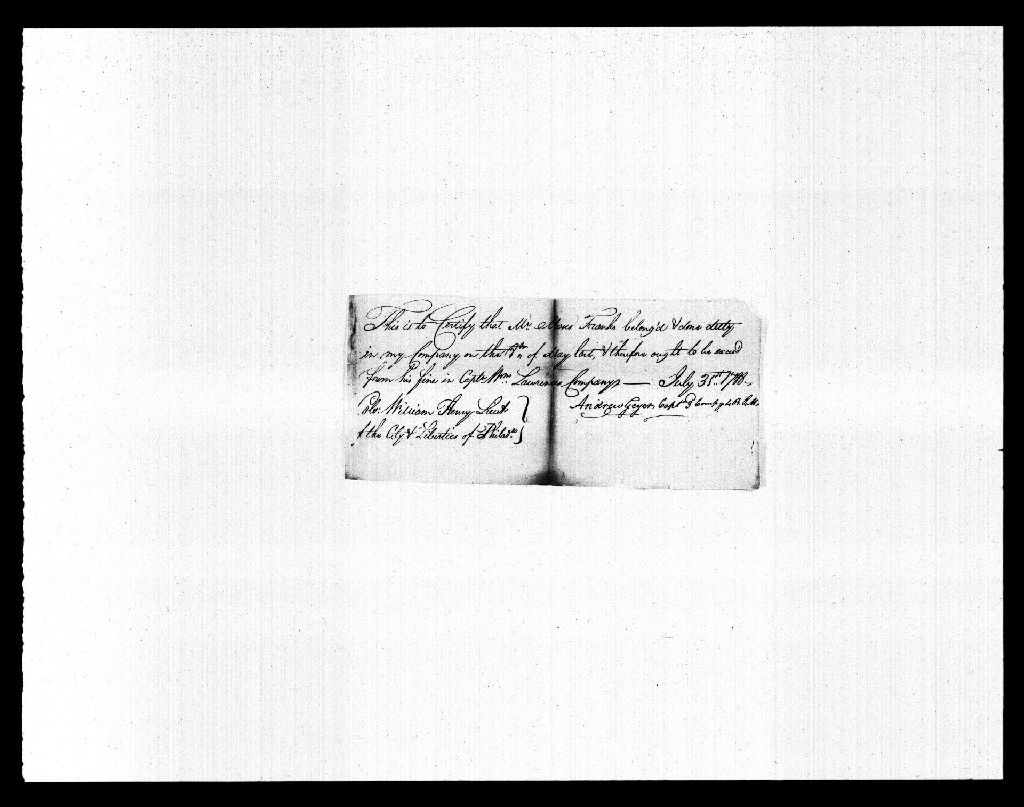 This is to Certify that Mr. Moses Franks belong'd & done duty
in my Company on the of May last, & therefore ought to be excud
from his fine in Capt. Wm. Lawrences Companys — July 31st
William Henry Lieut
of the City & Liberties of Philada.
Andrew Geyer Capt.